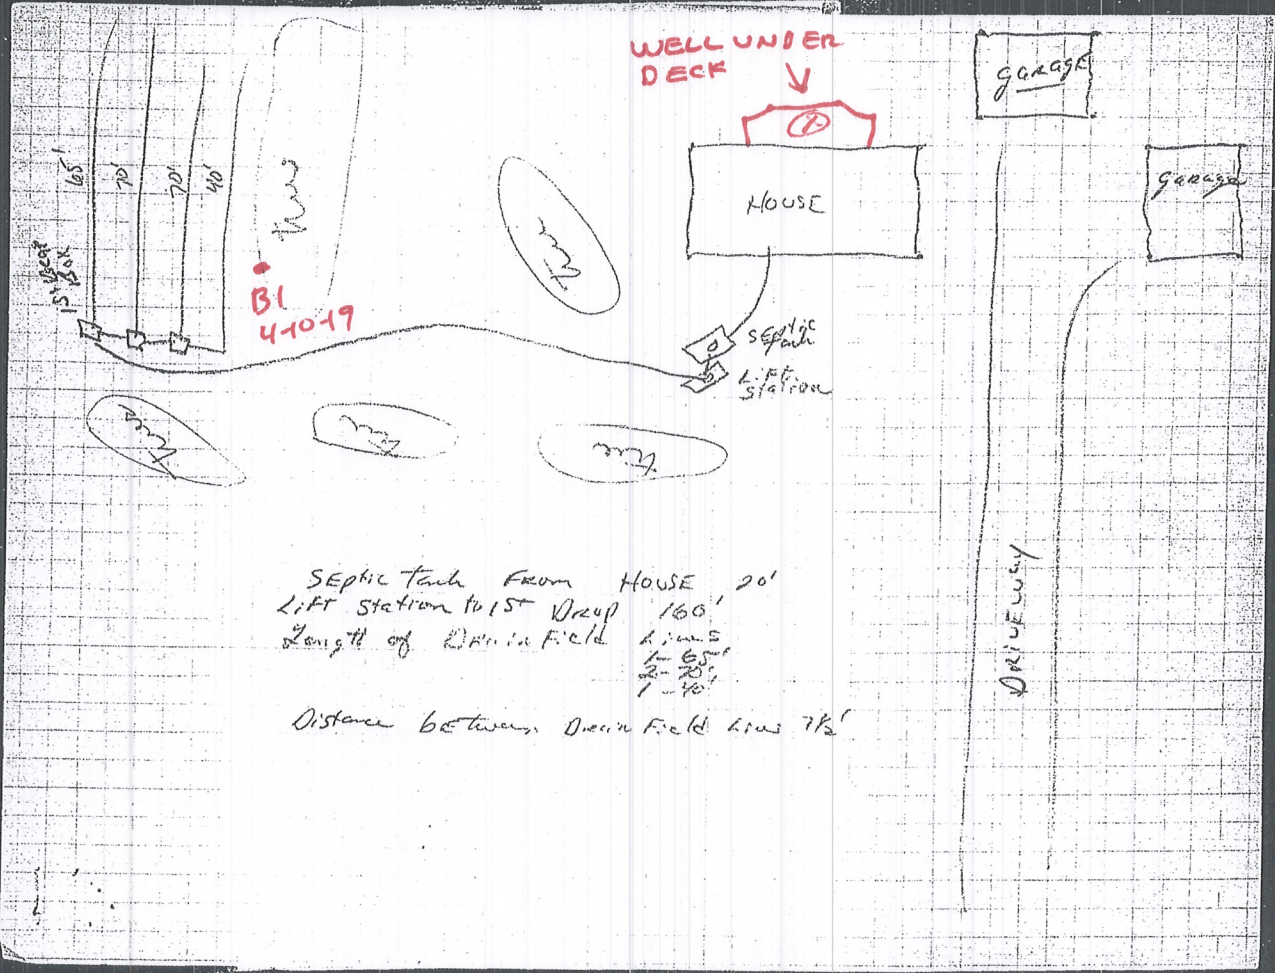 WELL UNDER
DECK
GARAGE
Garage
HOUSE
65'
70'
70'
40'
BOX
trees
tree
B1
4-10-19
SEptic
tank
Lift
Station
trees
tree
tree
DRIVEWAY
SEptic Tank From HOUSE 20'
Lift Station to 1st Drop 160'
Length of Drain Field Lines
1 - 65'
2 - 70'
1 - 40'
Distance between Drain Field Lines 7½'